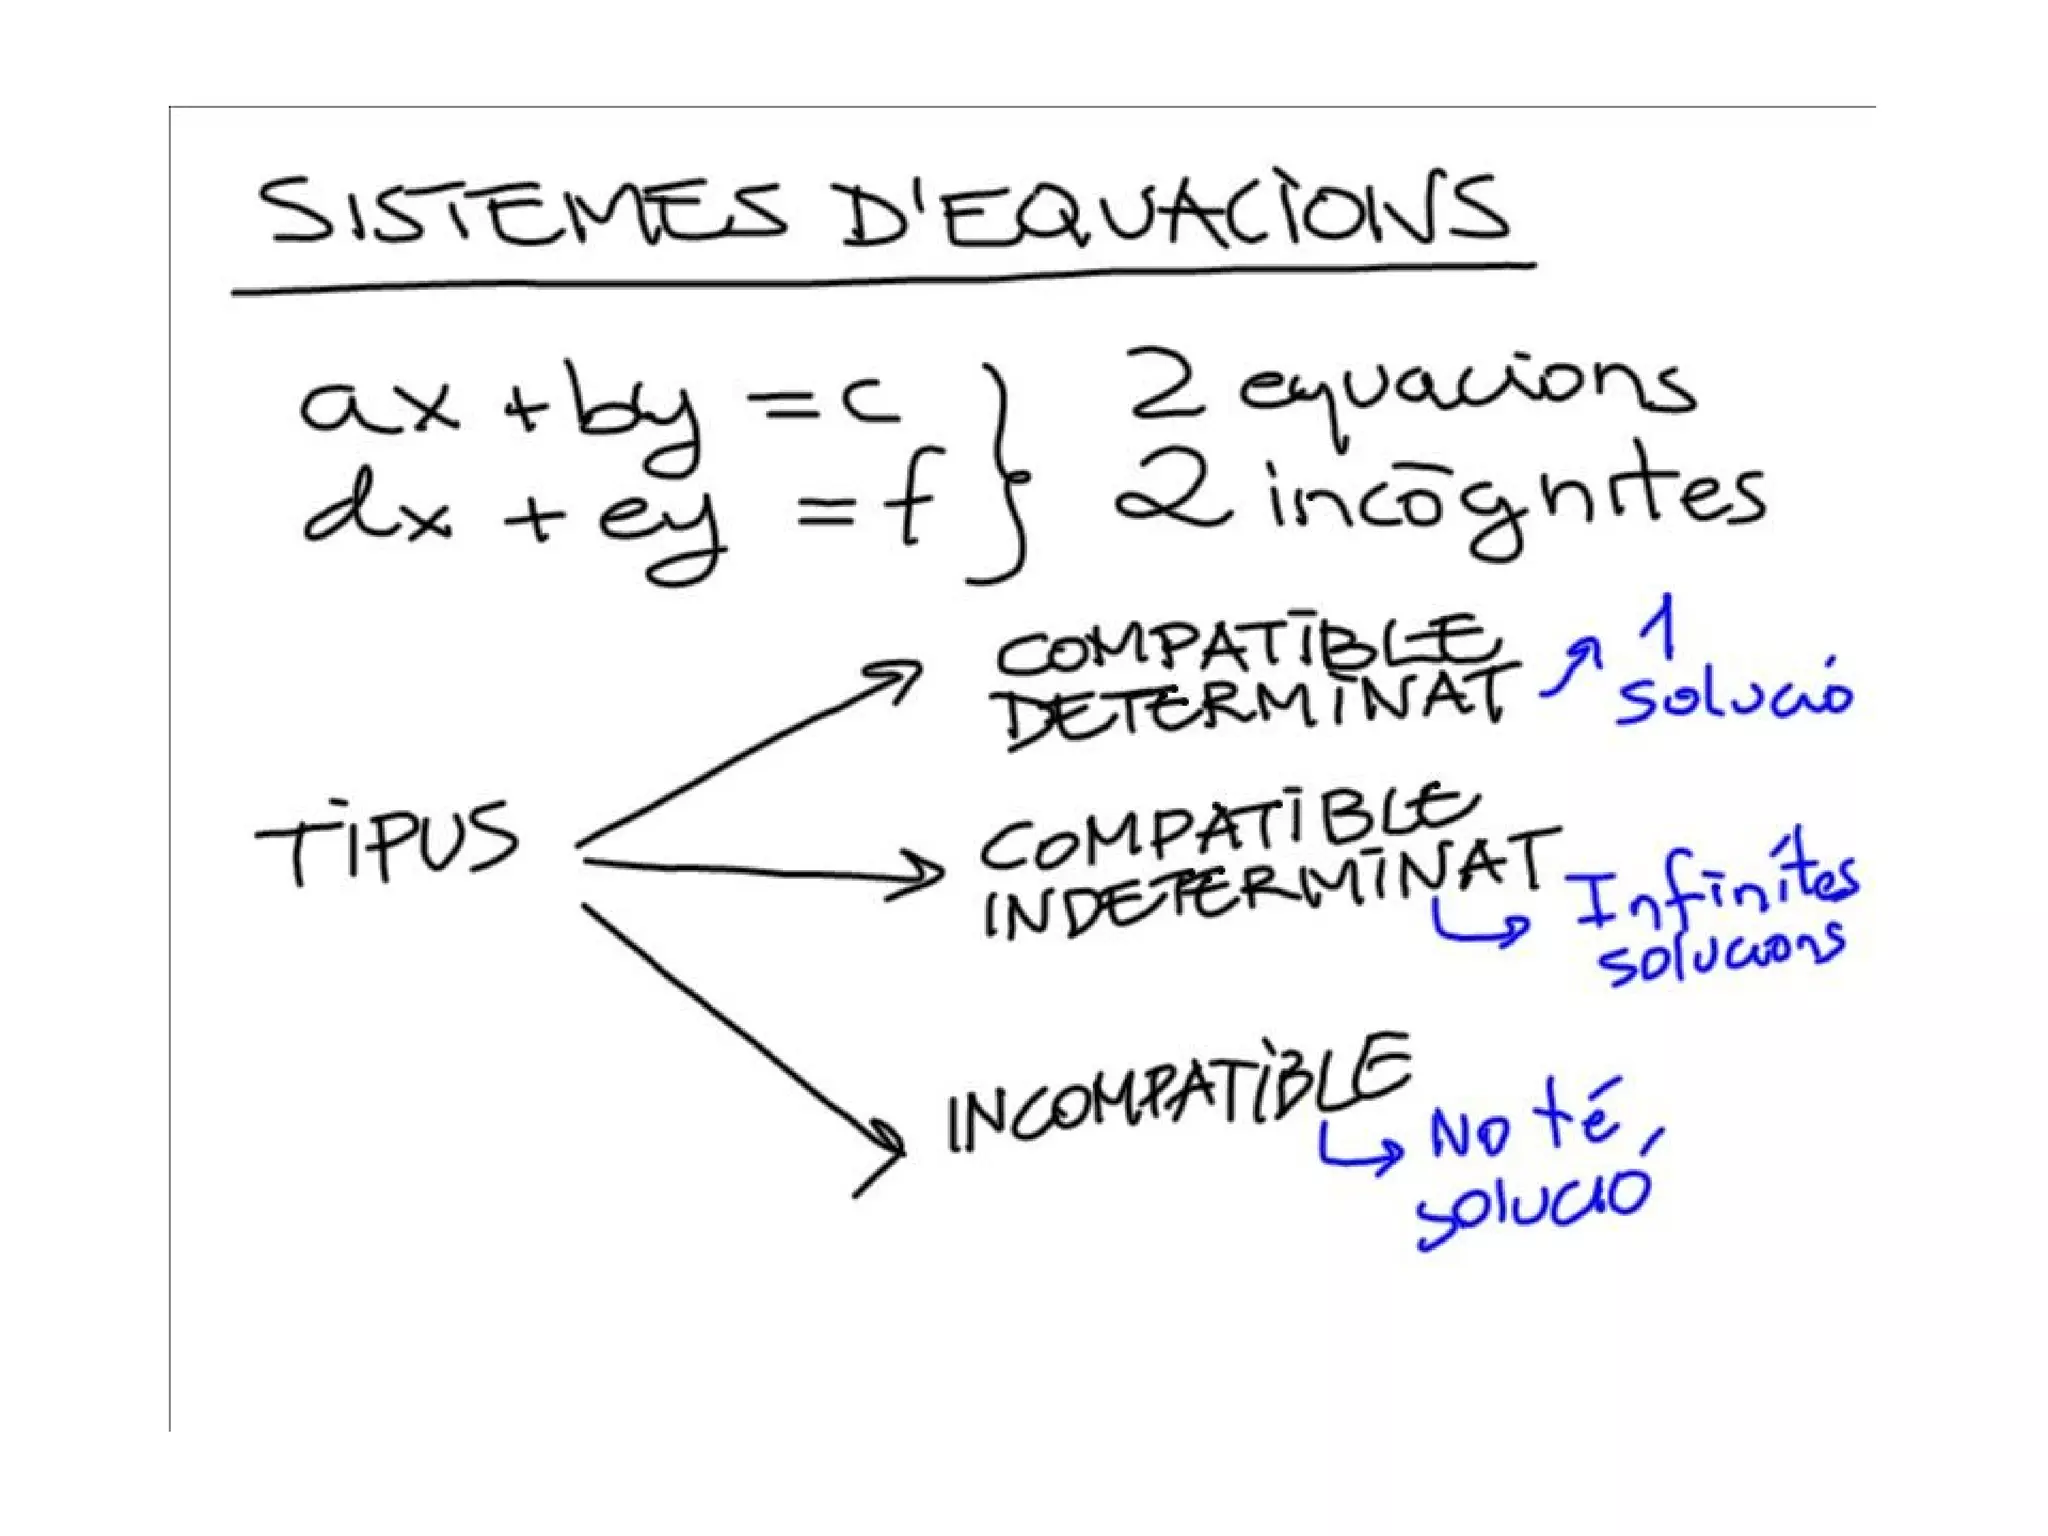 SISTEMES D'EQUACIONS
ax + by = c } 2 equacions
dx + ey = f } 2 incògnites
COMPATIBLE
DETERMINAT → 1
solució
TIPUS
COMPATIBLE
INDETERMINAT
↳ Infinites
solucions
INCOMPATIBLE
↳ No té
solució